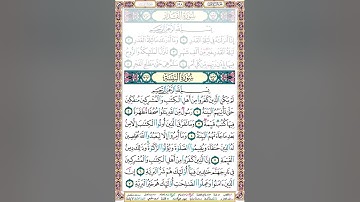 سُورَةُ القَدْرِ
بِسْمِ ٱللَّهِ ٱلرَّحْمَٰنِ ٱلرَّحِيمِ
إِنَّآ أَنزَلْنَٰهُ فِى لَيْلَةِ ٱلْقَدْرِ ١ وَمَآ أَدْرَىٰكَ مَا لَيْلَةُ ٱلْقَدْرِ ٢
لَيْلَةُ ٱلْقَدْرِ خَيْرٌ مِّنْ أَلْفِ شَهْرٍ ٣ تَنَزَّلُ ٱلْمَلَٰٓئِكَةُ وَٱلرُّوحُ
فِيهَا بِإِذْنِ رَبِّهِم مِّن كُلِّ أَمْرٍ ٤ سَلَٰمٌ هِىَ حَتَّىٰ مَطْلَعِ ٱلْفَجْرِ ٥
سُورَةُ البَيِّنَةِ
بِسْمِ ٱللَّهِ ٱلرَّحْمَٰنِ ٱلرَّحِيمِ
لَمْ يَكُنِ ٱلَّذِينَ كَفَرُوا۟ مِنْ أَهْلِ ٱلْكِتَٰبِ وَٱلْمُشْرِكِينَ مُنفَكِّينَ
حَتَّىٰ تَأْتِيَهُمُ ٱلْبَيِّنَةُ ١ رَسُولٌ مِّنَ ٱللَّهِ يَتْلُوا۟ صُحُفًا مُّطَهَّرَةً ٢
فِيهَا كُتُبٌ قَيِّمَةٌ ٣ وَمَا تَفَرَّقَ ٱلَّذِينَ أُوتُوا۟ ٱلْكِتَٰبَ إِلَّا مِنۢ
بَعْدِ مَا جَآءَتْهُمُ ٱلْبَيِّنَةُ ٤ وَمَآ أُمِرُوٓا۟ إِلَّا لِيَعْبُدُوا۟ ٱللَّهَ مُخْلِصِينَ
لَهُ ٱلدِّينَ حُنَفَآءَ وَيُقِيمُوا۟ ٱلصَّلَوٰةَ وَيُؤْتُوا۟ ٱلزَّكَوٰةَ وَذَٰلِكَ دِينُ
ٱلْقَيِّمَةِ ٥ إِنَّ ٱلَّذِينَ كَفَرُوا۟ مِنْ أَهْلِ ٱلْكِتَٰبِ وَٱلْمُشْرِكِينَ
فِى نَارِ جَهَنَّمَ خَٰلِدِينَ فِيهَآ أُو۟لَٰٓئِكَ هُمْ شَرُّ ٱلْبَرِيَّةِ ٦ إِنَّ
ٱلَّذِينَ ءَامَنُوا۟ وَعَمِلُوا۟ ٱلصَّٰلِحَٰتِ أُو۟لَٰٓئِكَ هُمْ خَيْرُ ٱلْبَرِيَّةِ ٧